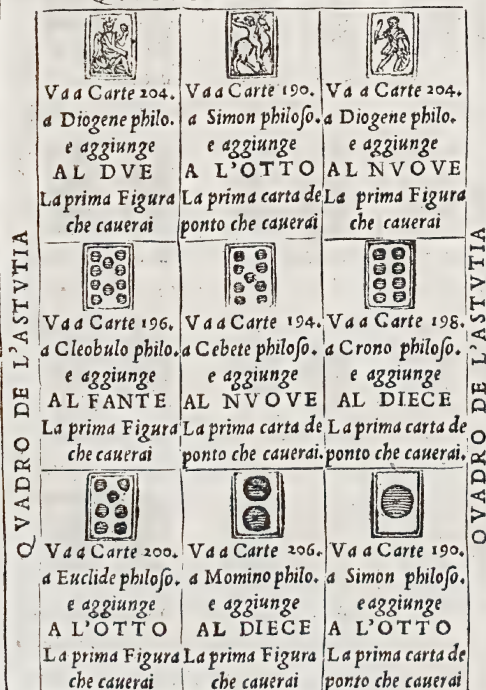 QVADRO DE L'ASTVTIA
Va a Carte 204.
a Diogene philo.
e aggiunge
AL DVE
La prima Figura
che cauerai
Va a Carte 190.
a Simon philoso.
e aggiunge
A L'OTTO
La prima carta de
ponto che cauerai
Va a Carte 204.
a Diogene philo.
e aggiunge
AL NVOVE
La prima Figura
che cauerai
Va a Carte 196.
a Cleobulo philo.
e aggiunge
AL FANTE
La prima Figura
che cauerai
Va a Carte 194.
a Cebete philoso.
e aggiunge
AL NVOVE
La prima carta de
ponto che cauerai.
Va a Carte 198.
a Crono philoso.
e aggiunge
AL DIECE
La prima carta de
ponto che cauerai.
Va a Carte 200.
a Euclide philoso.
e aggiunge
A L'OTTO
La prima Figura
che cauerai
Va a Carte 206.
a Momino philo.
e aggiunge
AL DIECE
La prima Figura
che cauerai
Va a Carte 190.
a Simon philoso.
e aggiunge
A L'OTTO
La prima carta de
ponto che cauerai
QVADRO DE L'ASTVTIA